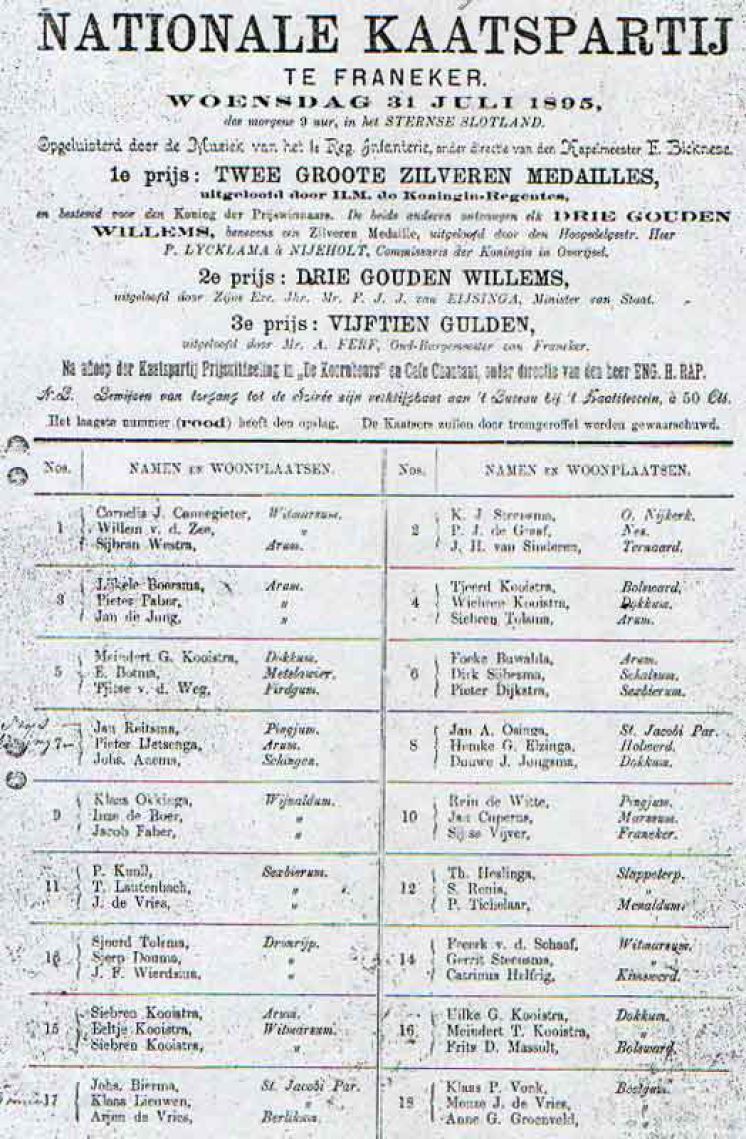 NATIONALE KAATSPARTIJ
TE FRANEKER.
WOENSDAG 31 JULI 1895,
des morgens 9 uur, in het STERNSE SLOTLAND.
Opgeluisterd door de Muziek van het 1e Reg. Infanterie, onder directie van den Kapelmeester F.
1e prijs: TWEE GROOTE ZILVEREN MEDAILLES,
uitgeloofd door H.M. de Koningin-Regentes,
en bestemd voor den Koning der Prijswinnaars. De beide anderen ontvangen elk DRIE GOUDEN
WILLEMS, benevens een Zilveren Medaille, uitgeloofd door den Hoogedelgestr. Heer
P. LYCKLAMA à NIJEHOLT, Commissaris der Koningin in Overijsel.
2e prijs: DRIE GOUDEN WILLEMS,
uitgeloofd door Zijne Exc. Jhr. Mr. F. J. J. van EIJSINGA, Minister van Staat.
3e prijs: VIJFTIEN GULDEN,
uitgeloofd door Mr. A. FERF, Oud-Burgemeester van Franeker.
Na afloop der Kaatspartij Prijsuitdeeling in „De Koornbeurs" en Café Chantant, onder directie van den heer ENG. H. RAP.
N.B. Bewijzen van toegang tot de Soirée zijn verkrijgbaar aan 't Bureau bij 't Kaatsterrein, à 50 Cts.
Het laagste nummer (rood) heeft den opslag. De Kaatsers zullen door tromgeroffel worden gewaarschuwd.
Nos. NAMEN EN WOONPLAATSEN. Nos. NAMEN EN WOONPLAATSEN.
1 Cornelis J. Cannegieter, Witmarsum.
Willem v. d. Zee, "
Sijbran Westra, Arum.
2 K. J. Steensma, O. Nijkerk.
P. J. de Graaf, Nes.
J. H. van Sinderen, Ternaard.
3 Lijkele Boersma, Arum.
Pieter Faber, "
Jan de Jong, "
4 Tjeerd Kooistra, Bolsward.
Wiebren Kooistra, Dokkum.
Siebren Tolsma, Arum.
5 Meindert G. Kooistra, Dokkum.
E. Botma, Metslawier.
Tjitse v. d. Weg, Firdgum.
6 Foeke Buwalda, Arum.
Dirk Sijbesma, Schalsum.
Pieter Dijkstra, Sexbierum.
7 Jan Reitsma, Pingjum.
Pieter IJetsenga, Arum.
Johs. Anema, Selingen.
8 Jan A. Osinga, St. Jacobi Par.
Hemke G. Elzinga, Holwerd.
Douwe J. Jongsma, Dokkum.
9 Klaas Okkinga, Wijnaldum.
de Boer, "
Jacob Faber, "
10 Rein de Witte, Pingjum.
Jan Cuperus, Marssum.
Sijtse Vijver, Franeker.
11 P. Kunst, Sexbierum.
T. Lautenbach, "
J. de Vries, "
12 Th. Heslinga, Slappeterp.
S. Renia, "
P. Tichelaar, Menaldum.
13 Sjoerd Tolsma, Dronrijp.
Sjerp Douma, "
J. F. Wierdsma, "
14 Freerk v. d. Schaaf, Witmarsum.
Gerrit Steensma, "
Catrinus Helfrig, Kimswerd.
15 Siebren Kooistra, Arum.
Eeltje Kooistra, Witmarsum.
Siebren Kooistra, "
16 Uilke G. Kooistra, Dokkum.
Meindert T. Kooistra, "
Frits D. Massolt, Bolsward.
17 Johs. Bierma, St. Jacobi Par.
Klaas Lieuwen, "
Arjen de Vries, Berlikum.
18 Klaas P. Vonk, Beetgum.
Menze J. de Vries, "
Anne G. Groenveld, "